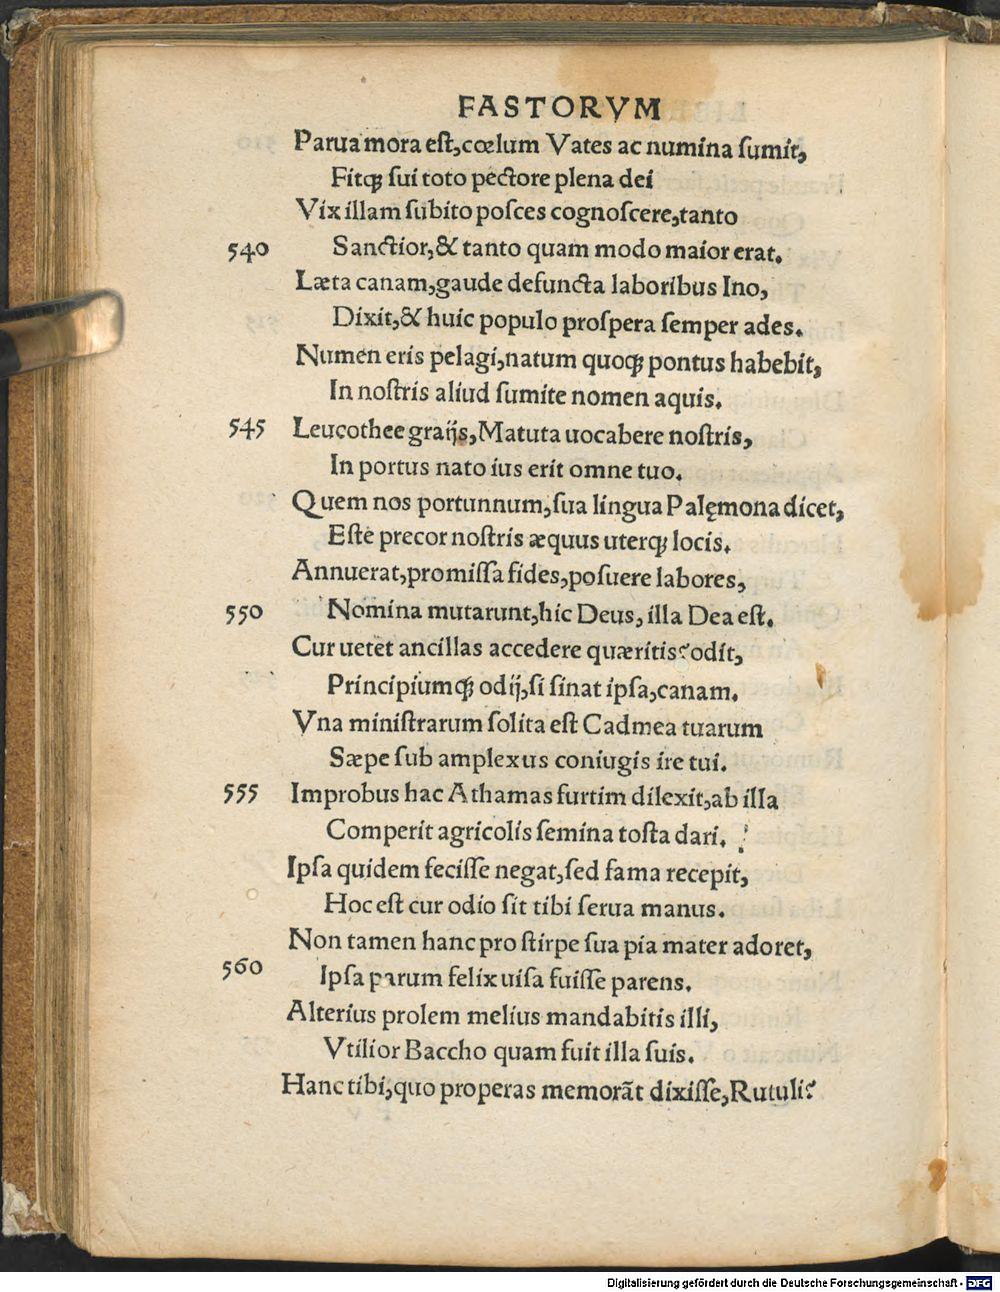 FASTORVM
Parua mora est,cœlum Vates ac numina sumit,
Fitq; sui toto pectore plena dei
Vix illam subito posces cognoscere,tanto
540 Sanctior,& tanto quam modo maior erat.
Læta canam,gaude defuncta laboribus Ino,
Dixit,& huic populo prospera semper ades.
Numen eris pelagi,natum quoq; pontus habebit,
In nostris aliud sumite nomen aquis.
545 Leucothee graijs,Matuta uocabere nostris,
In portus nato ius erit omne tuo.
Quem nos portunnum,sua lingua Palęmona dicet,
Este precor nostris æquus uterq; locis.
Annuerat,promissa fides,posuere labores,
550 Nomina mutarunt,hic Deus, illa Dea est.
Cur uetet ancillas accedere quæritis?odit,
Principiumq; odij,si sinat ipsa,canam.
Vna ministrarum solita est Cadmea tuarum
Sæpe sub amplexus coniugis ire tui.
555 Improbus hac Athamas furtim dilexit,ab illa
Comperit agricolis semina tosta dari.
Ipsa quidem fecisse negat,sed fama recepit,
Hoc est cur odio sit tibi serua manus.
Non tamen hanc pro stirpe sua pia mater adoret,
560 Ipsa parum felix uisa fuisse parens.
Alterius prolem melius mandabitis illi,
Vtilior Baccho quam fuit illa suis.
Hanc tibi,quo properas memorāt dixisse,Rutuli?
Digitalisierung gefördert durch die Deutsche Forschungsgemeinschaft - DFG